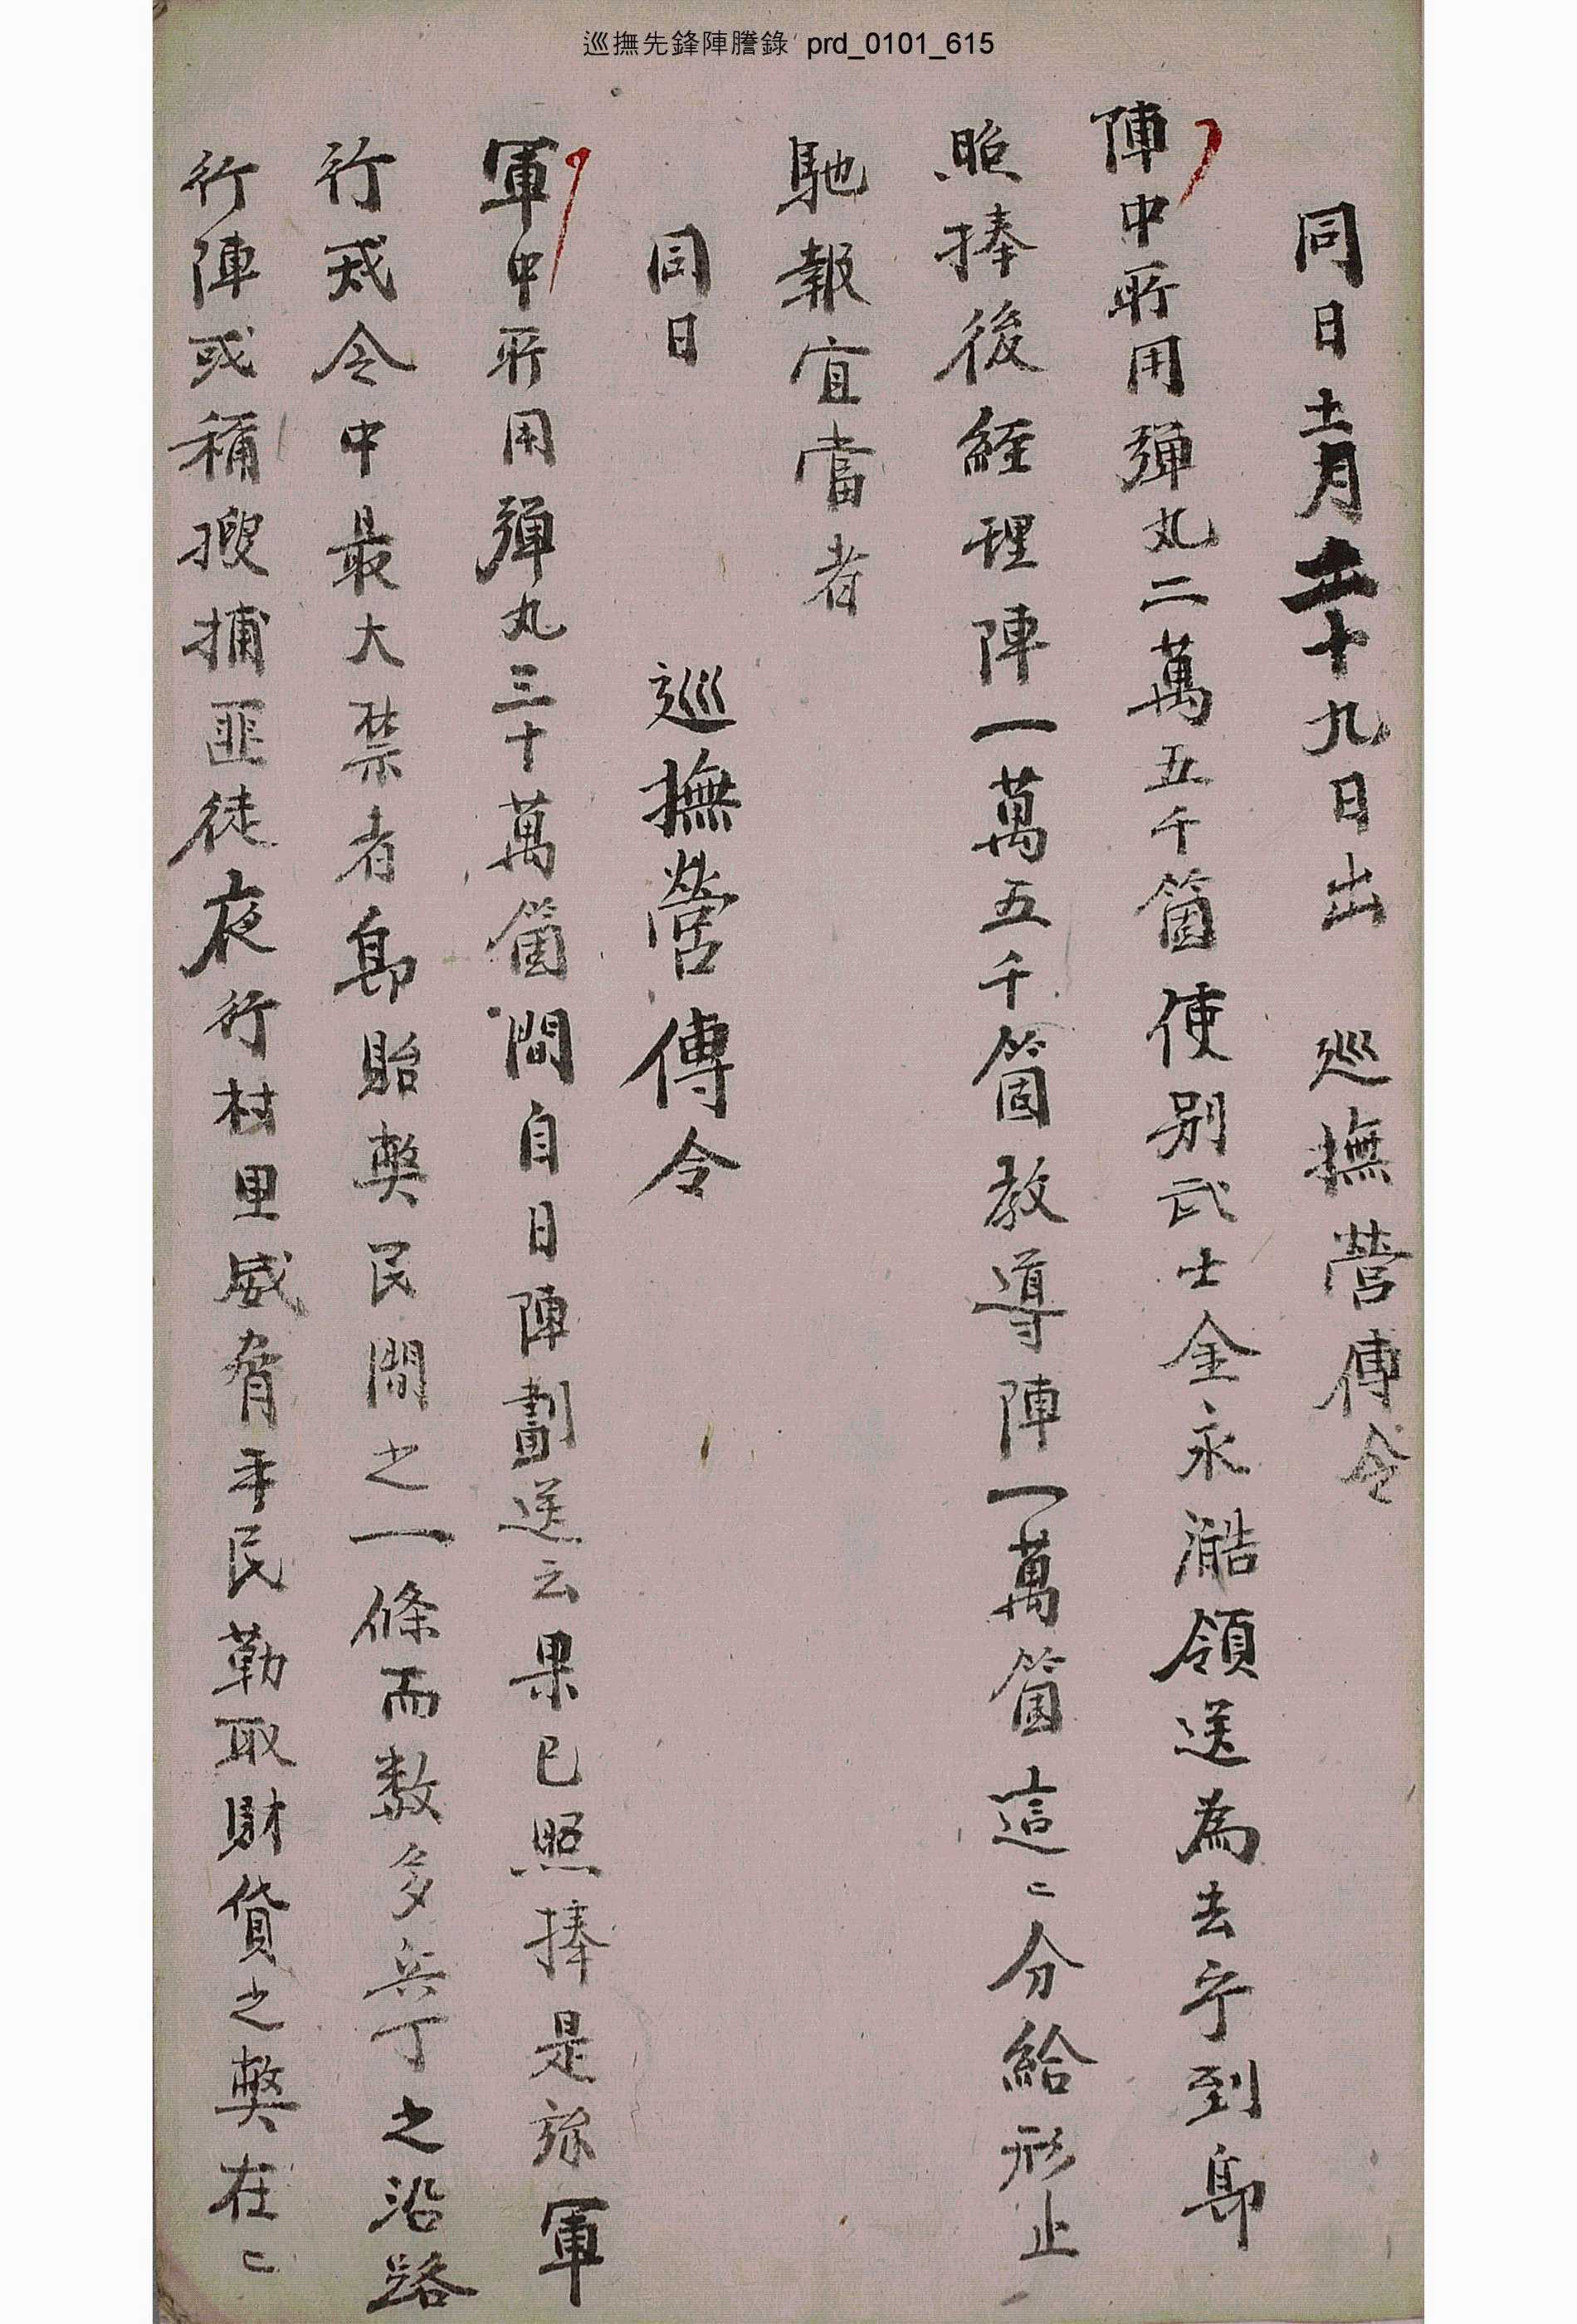 巡撫先鋒陣謄錄 prd_0101_615
同日十二月二十九日出 巡撫營傳令
陣中所用彈丸二萬五千箇使別武士金永澔領送為去乎到卽
照捧後經理陣一萬五千箇敎導陣一萬箇這這分給形止
馳報宜當者
同日 巡撫營傳令
軍中所用彈丸三十萬箇間自日陣劃送云果已照捧是旀軍
行戒令中最大禁者卽貽獘民間之一條而数多兵丁之沿路
行陣或稱搜捕匪徒夜行村里威脅平民勒取財貨之獘在在